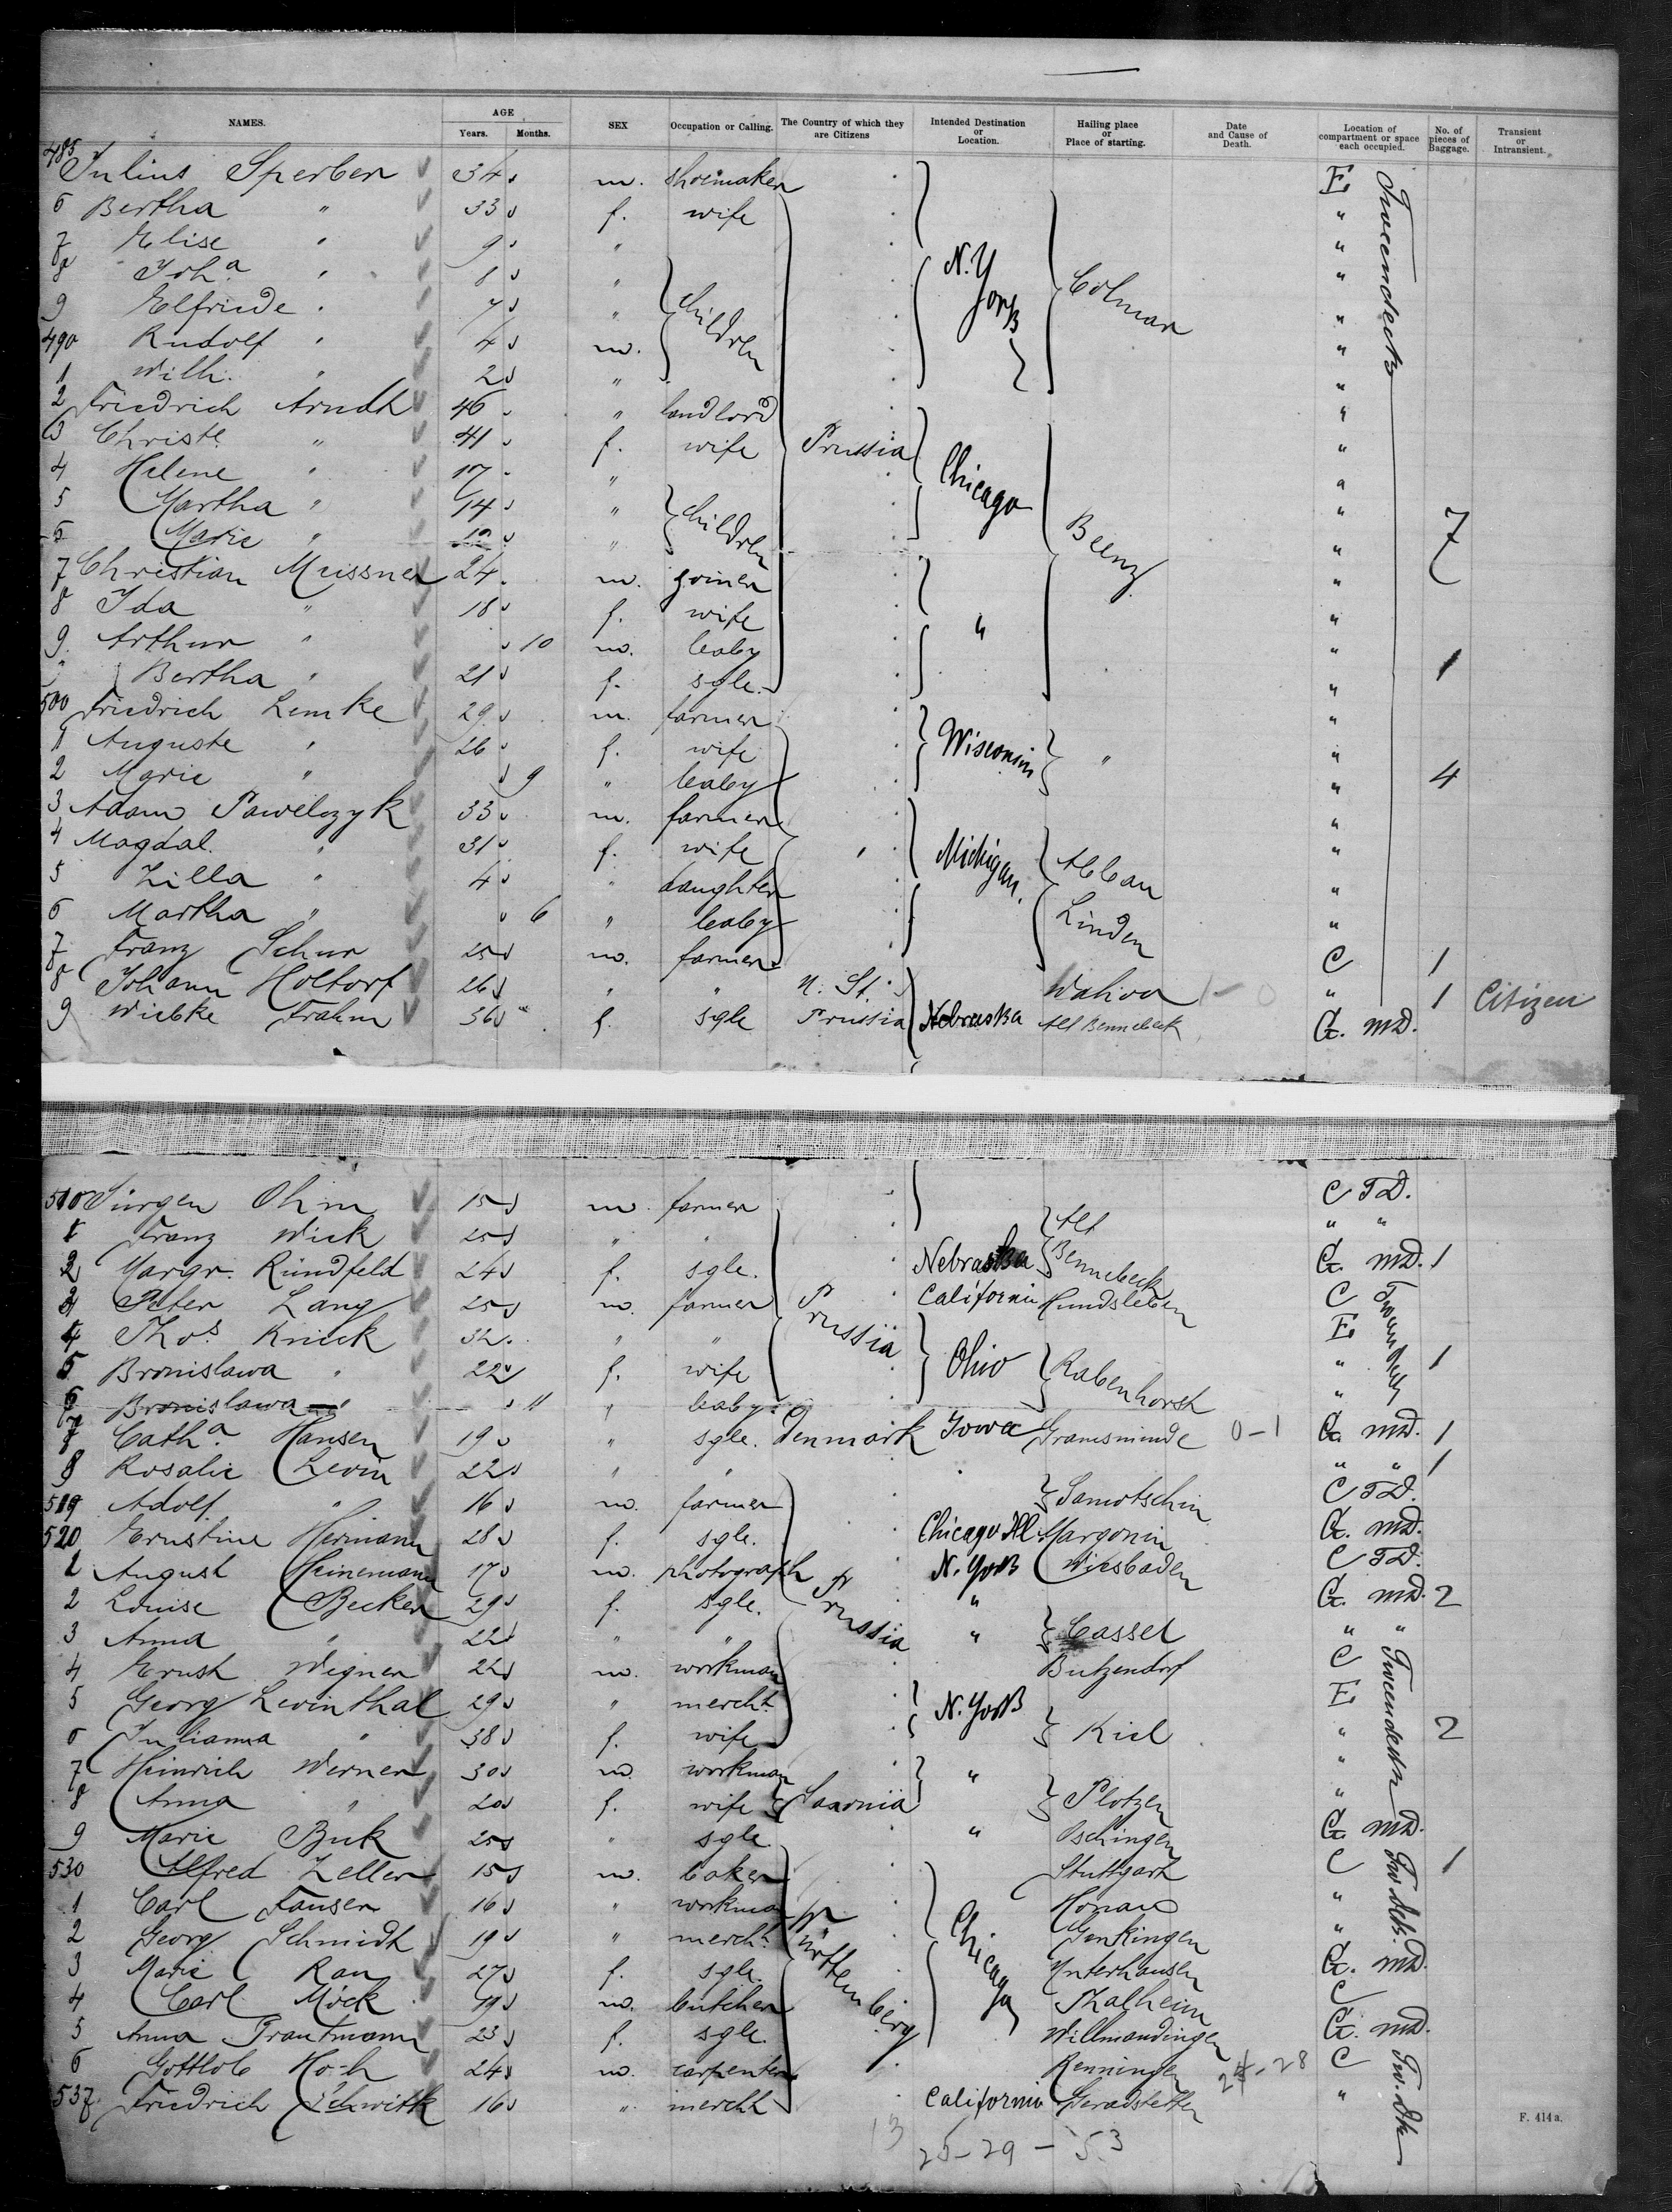 NAMES. AGE Years. Months. SEX Occupation or Calling. The Country of which they are Citizens Intended Destination or Location. Hailing place or Place of starting. Date and Cause of Death. Location of compartment or space each occupied. No. of pieces of Baggage. Transient or Intransient.
485 Julius Sperber 34 m. shoemaker E Tweendeck
6 Bertha " 33 f. wife "
7 Elise " 9 " "
8 Joh.a " 8 " children N. York Colmar "
9 Elfriede " 7 " "
490 Rudolf " 4 m. "
1 Willi. " 2 " "
2 Friedrich Arndt 46 " landlord "
3 Christe. " 41 f. wife Prussia "
4 Helene " 17 " Chicago "
5 Martha " 14 " children "  7
6 Marie " " "
7 Christian Meissner 24 m. joiner "
8 Ida " 18 f. wife "
9 Arthur " 10 m. baby " "
" Bertha " 21 f. sgle. " 1
500 Friedrich Lemke 29 m. farmer "
1 Auguste " 26 f. wife Wisconsin " "
2 Marie " 9 " baby " 4
3 Adam Pawelczyk 33 m. farmer "
4 Magdal. " 31 f. wife " Michigan. "
5 Zilla " 4 " daughter "
6 Martha " 6 " baby Linden "
7 Franz Schur 25 m. farmer C 1
8 Johann Holtorf 26 " " U. St. Wahoo 1-0 " 1 Citizen
9 Wiebke Frahm 36 f. sgle Prussia Nebraska Alt Bennebeck G. MD.
510 Jürgen Ohm 15 m. farmer C TD.
1 Franz Wick 25 " " Alt " "
2 Margr. Rundfeld 24 f. sgle. Nebraska Bennebeck G. MD. 1
3 Peter Lang 25 m. farmer Prussia California C
4 Thos. Knieck 32 " " E
5 Bronislawa " 22 f. wife Ohio Rabenhorst " 1
6 Bronislawa " 11 " baby "
7 Cath.a Hansen 19 " sgle. Denmark Iowa 0-1 G. MD. 1
8 Rosalie Levin 22 " " " " 1
519 Adolf " 16 m. farmer Samotschin C TD.
520 Ernstine Hermann 28 f. sgle. Chicago Ill Margonin G. MD.
1 August Heinemann 17 m. photograph Prussia N. York Wiesbaden C TD.
2 Louise Becker 29 f. sgle. " G. MD. 2
3 Anna " 22 " " " Cassel " "
4 Ernst Wegner 22 m. workman Butzendorf C Tweendeck
5 Georg Levinthal 29 " mercht. N. York E
6 Julianna " 38 f. wife Kiel " 2
7 Heinrich Werner 30 m. workman " "
8 Anna " 20 f. wife Saxonia Plotzen "
9 Marie Buk 25 " sgle " G. MD.
530 Alfred Zeller 15 m. baker Stuttgart C 1
1 Carl Fauser 16 " workman Württemberg Honau "
2 Georg Schmidt 19 " mercht. Chicago Genkingen "
3 Marie Rau 27 f. sgle. Unterhausen G. MD.
4 Carl Möck 19 m. butcher Thalheim C
5 Anna Trautmann 23 f. sgle. Willmandingen G. MD.
6 Gottlob 24 m. carpenter Renningen C Tw. Dk
537 Friedrich 16 " mercht California Geradstetten "
13 25-29-53
F. 414 a.